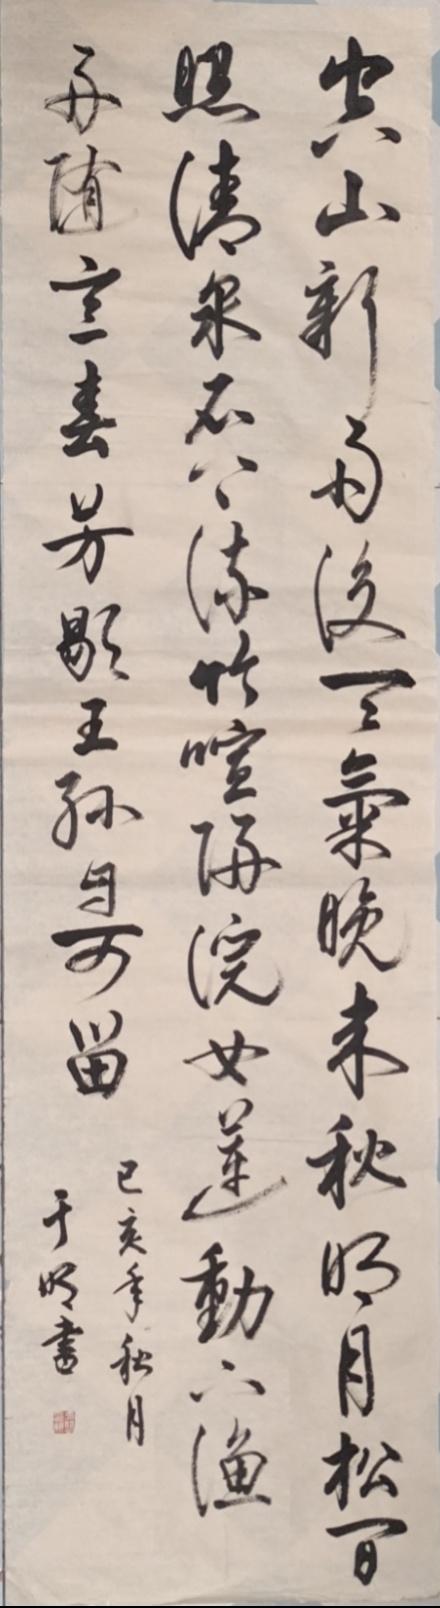 空山新雨後天氣晚来秋明月松間
照清泉石上流竹喧歸浣女蓮動下漁
舟隨意春芳歇王孫自可留
己亥年秋月
于明書